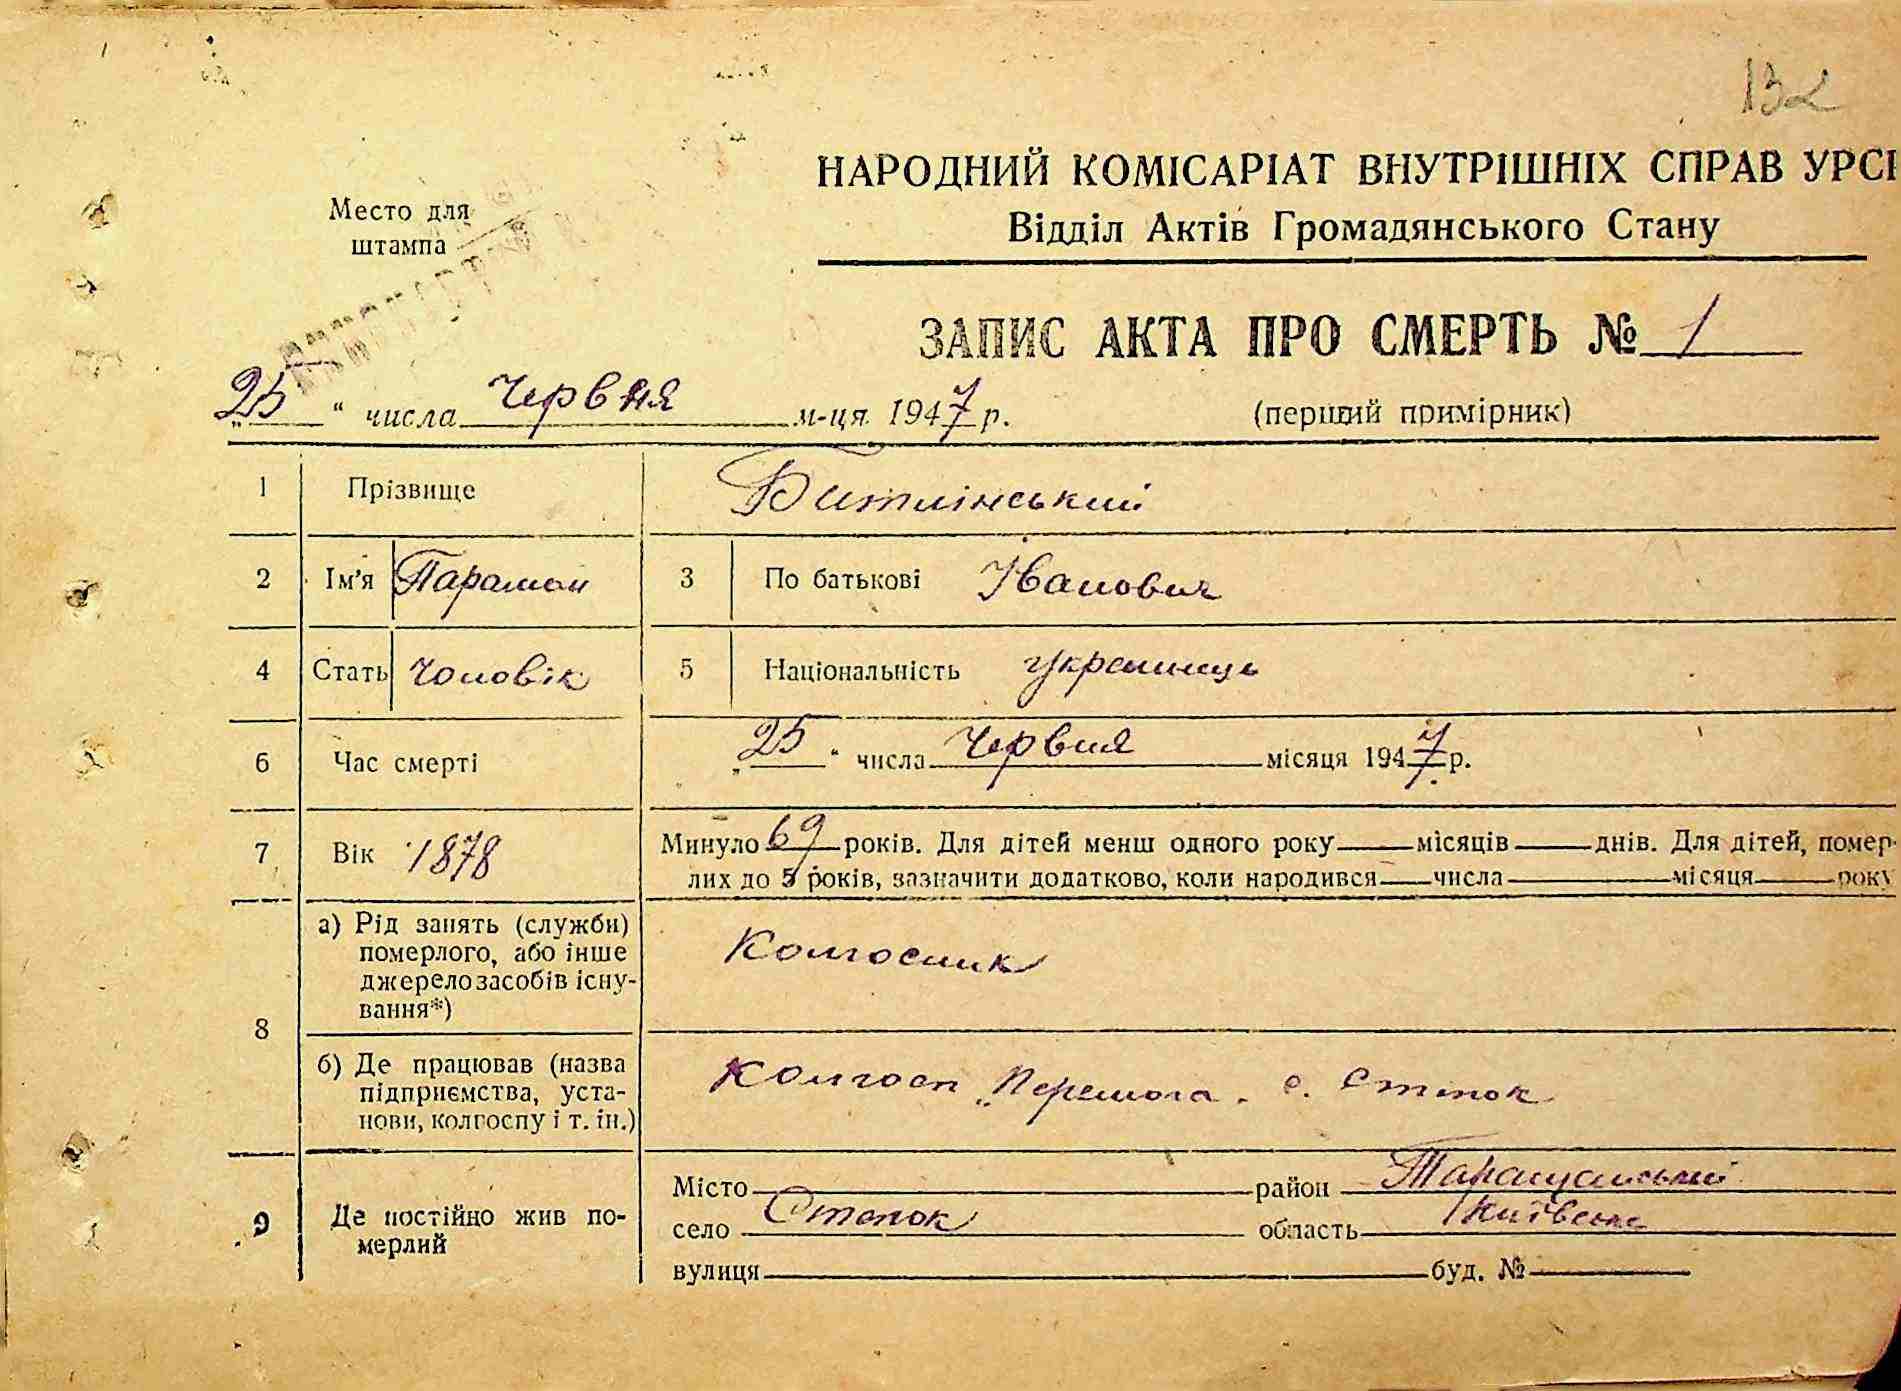 132
НАРОДНИЙ КОМІСАРІАТ ВНУТРІШНІХ СПРАВ УРСР
Відділ Актів Громадянського Стану
Место для
штампа
ЗАПИС АКТА ПРО СМЕРТЬ № 1
„25“ числа Червня м-ця 1947 р.
(перший примірник)
1 Прізвище Битлінський
2 Ім'я Парамон 3 По батькові Іванович
4 Стать Чоловік 5 Національність українець
6 Час смерті „25“ числа Червня місяця 1947 р.
7 Вік 1878 Минуло 69 років. Для дітей менш одного року ___ місяців ___ днів. Для дітей, помер-
лих до 5 років, зазначити додатково, коли народився ___ числа ___ місяця ___ року
8 а) Рід занять (служби)
померлого, або інше
джерело засобів існу-
вання*)
Колгоспник
б) Де працював (назва
підприємства, уста-
нови, колгоспу і т. ін.)
Колгосп „Перемога. с. Степок
9 Де постійно жив по-
мерлий
Місто ___ район Таращанський
село Степок область Київська
вулиця ___ буд. № ___